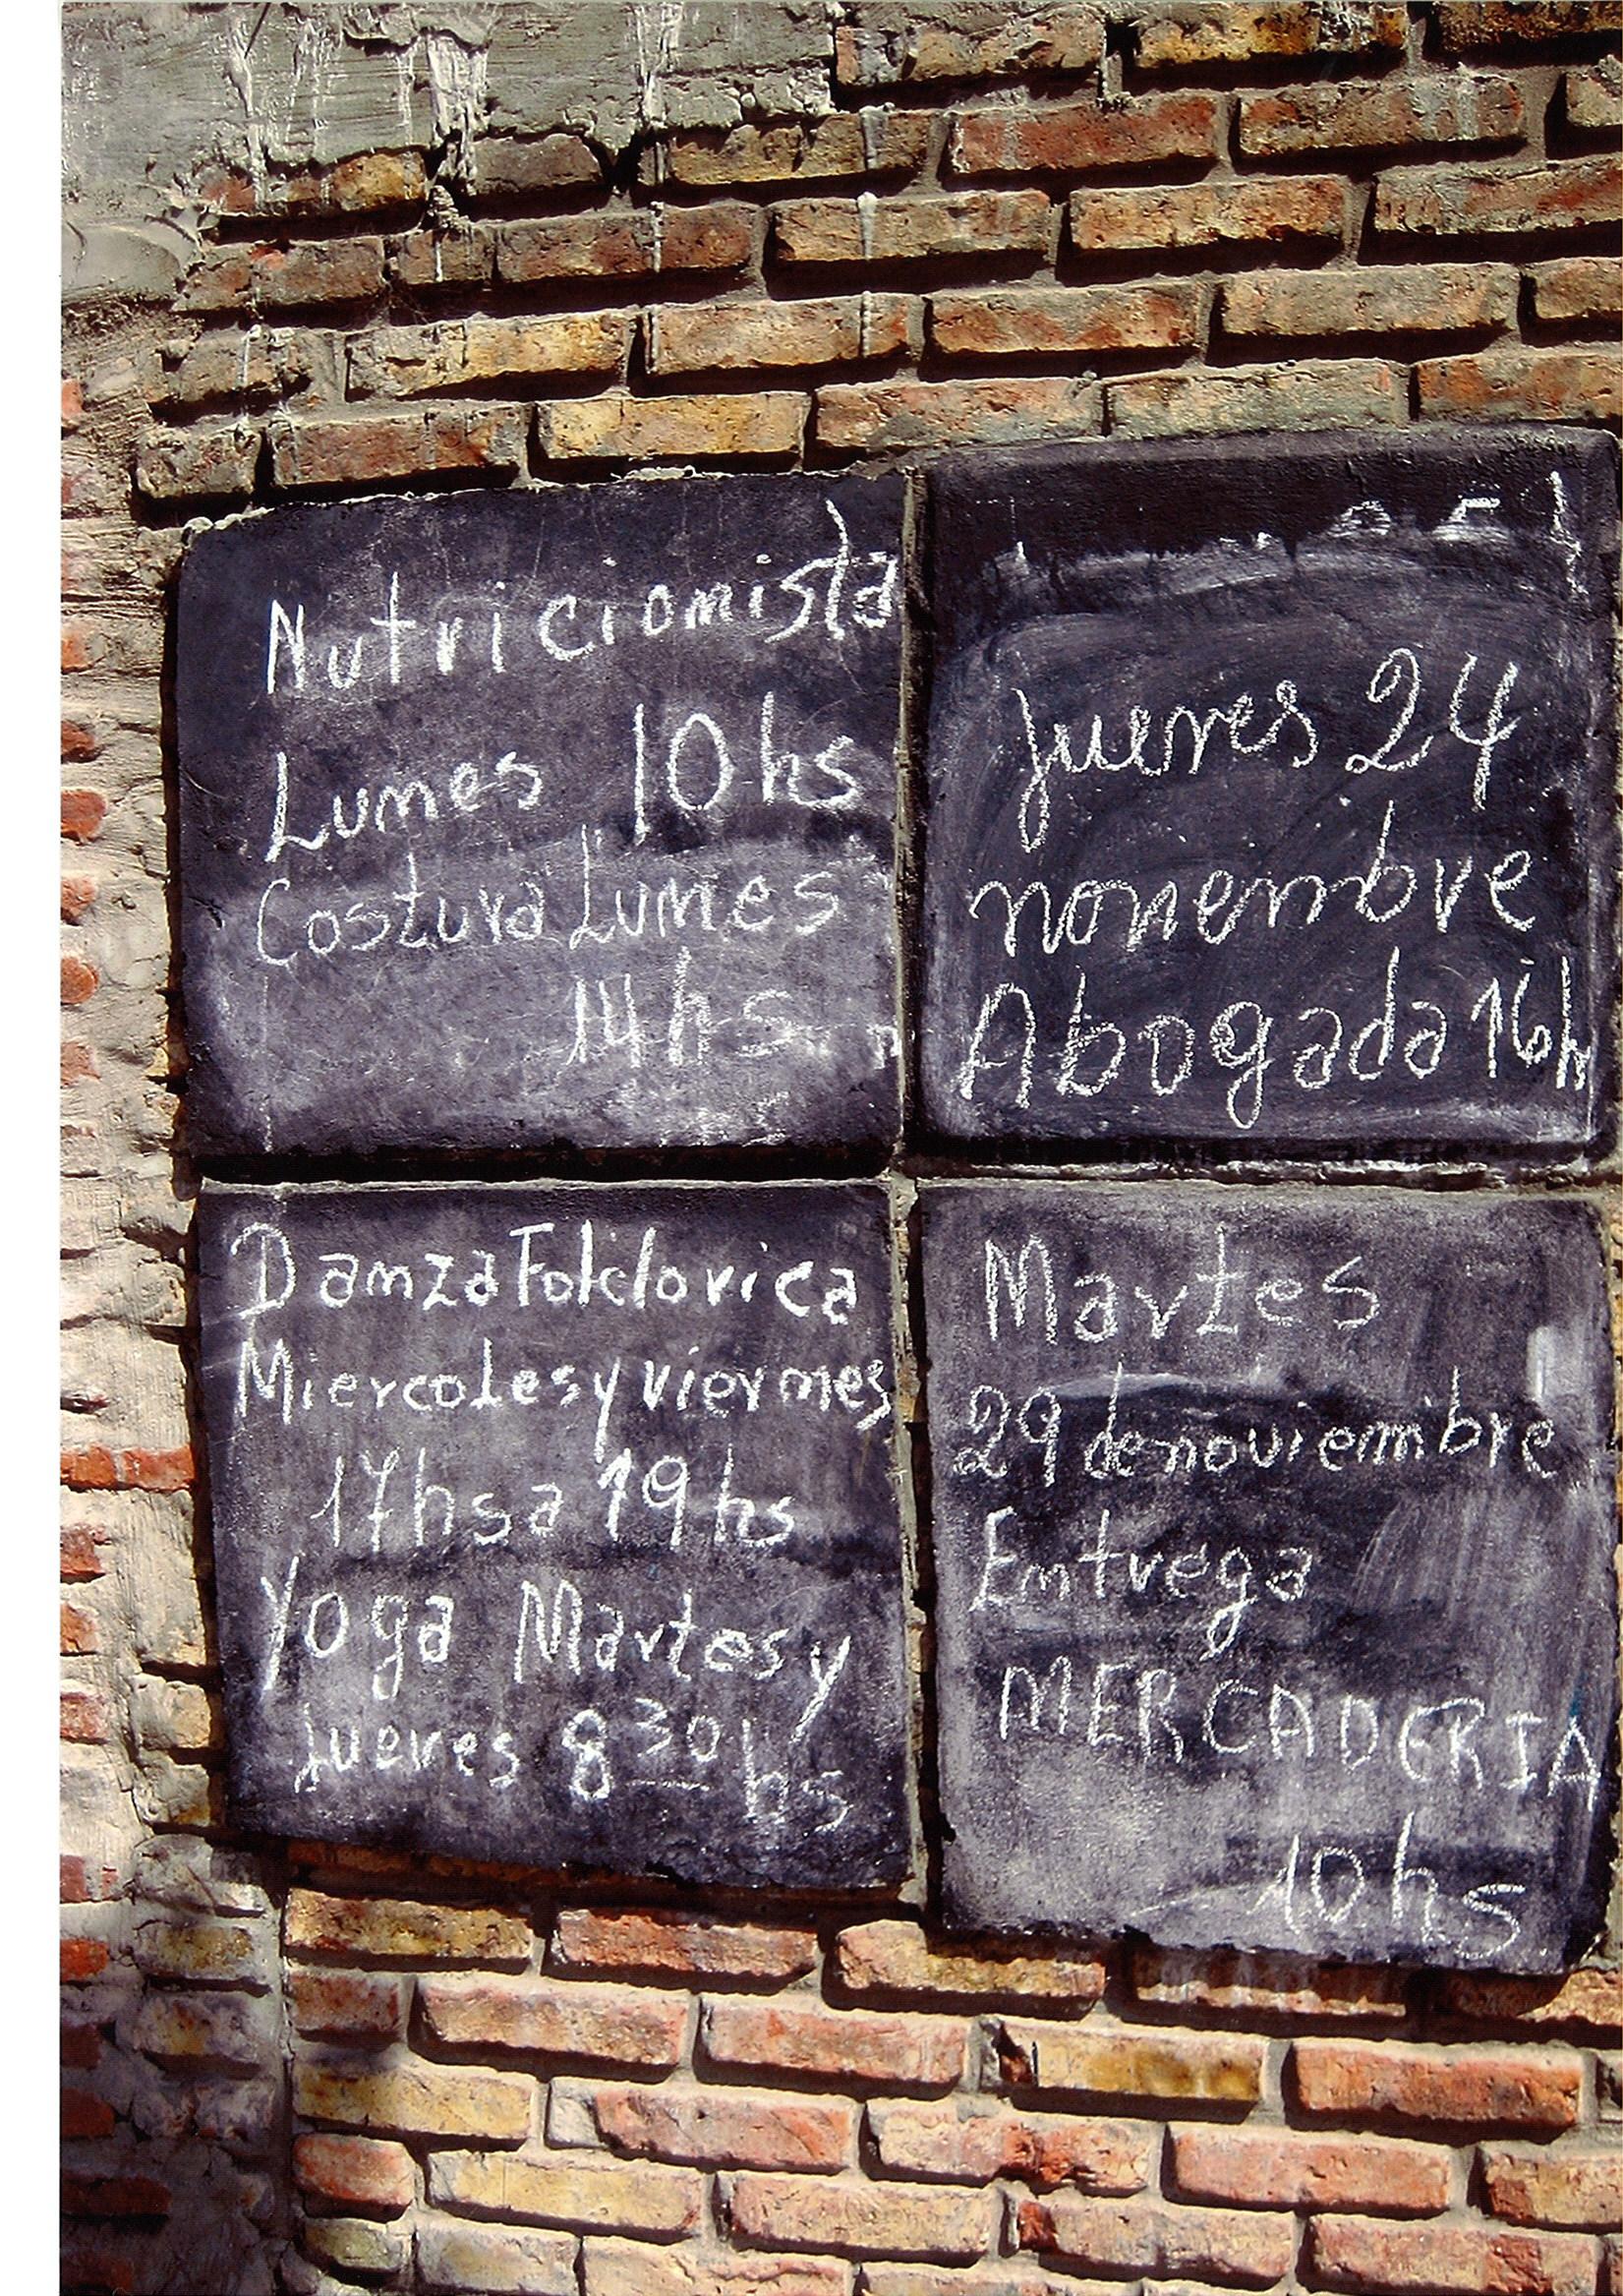 Nutricionista
Lunes 10 hs
Costura Lunes
14 hs
Jueves 24
novembre
Abogada 16h
Danza Folclorica
Miercoles y viernes
17 hs a 19 hs
Yoga Martes y
Jueves 8 30 hs
Martes
29 de noviembre
Entrega
MERCADERIA
10 hs